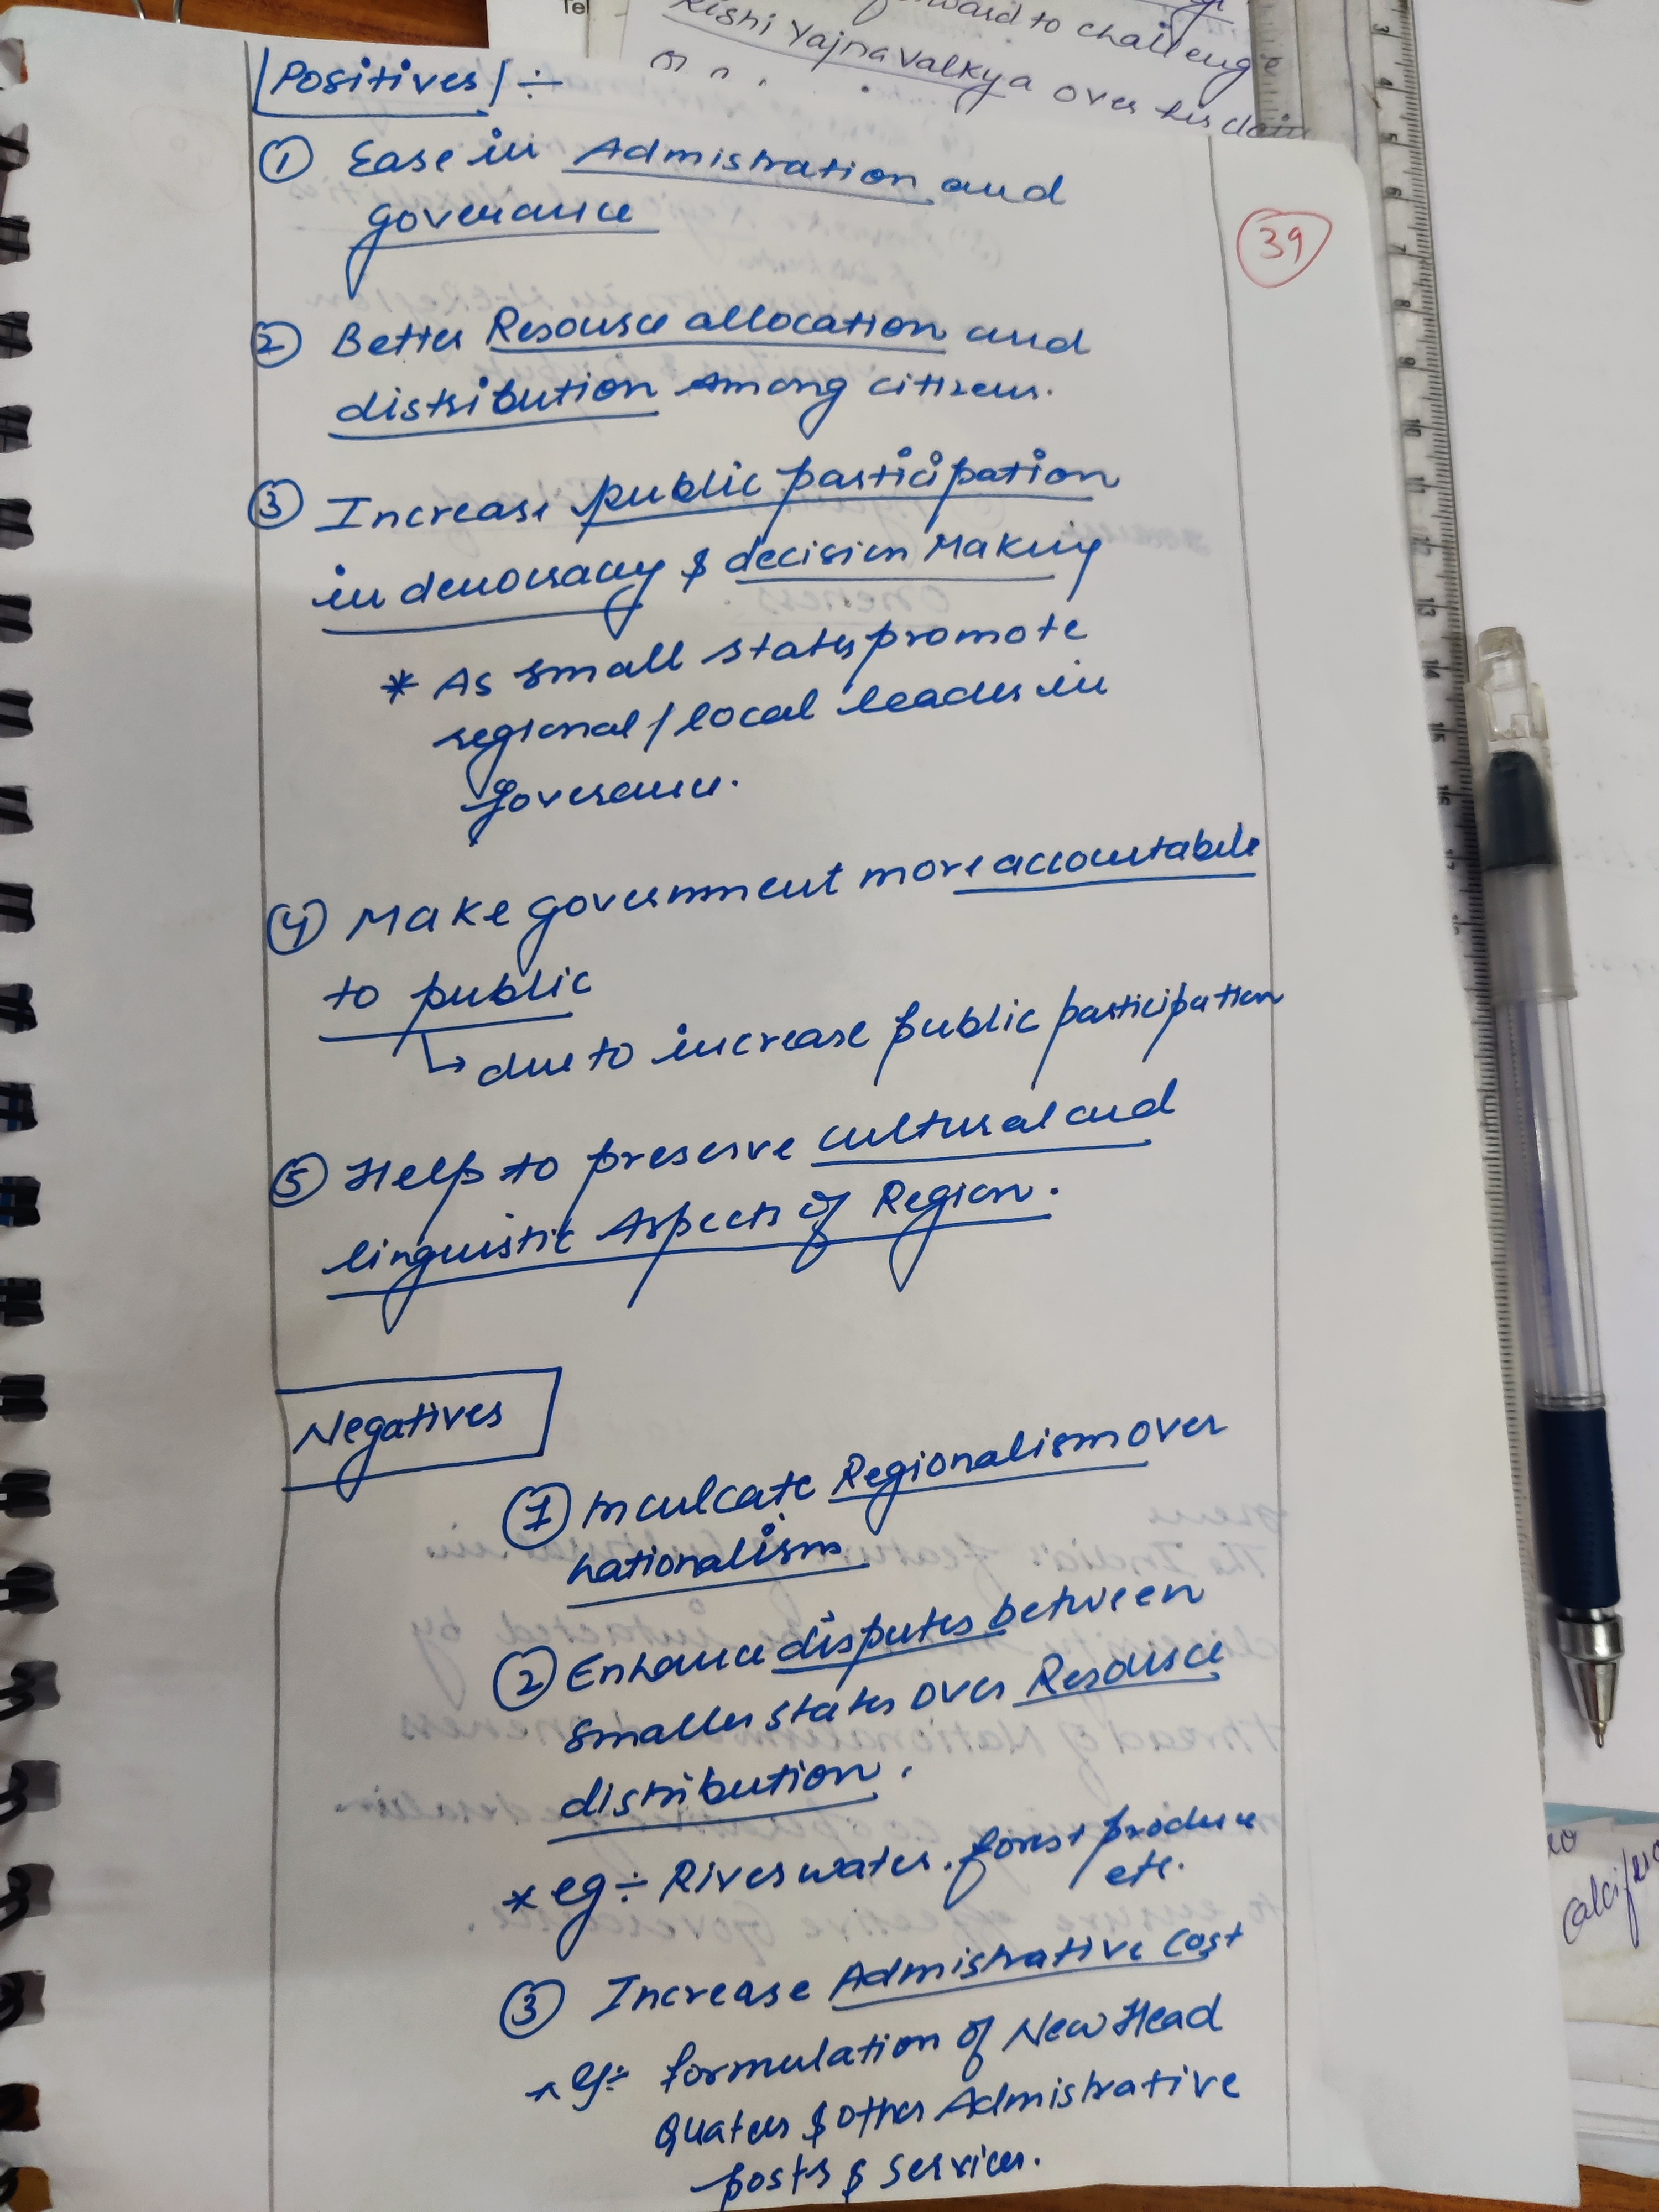 Tel
ward to challenge
Rishi Yajnavalkya over his claim
Positives :-
① Ease in Admistration and
goverance
39
② Better Resource allocation and
distribution Among citizens.
③ Increase public participation
in democracy & decision Making
* As small states promote
regional / local leaders in
goverance.
④ Make government more accountabele
to public
↳ due to increase public participation
⑤ Help to preserve cultural and
linguistic Aspects of Region.
Negatives
① Inculcate Regionalism over
nationalism
② Enhance disputes between
smaller states over Resource
distribution.
* eg :- River water, forest produce
etc.
③ Increase Admistrative Cost
* eg :- formulation of New Head
Quaters & other Admistrative
posts & services.
3
4
5
6
7
8
9
10
11
12
13
14
15
16
17